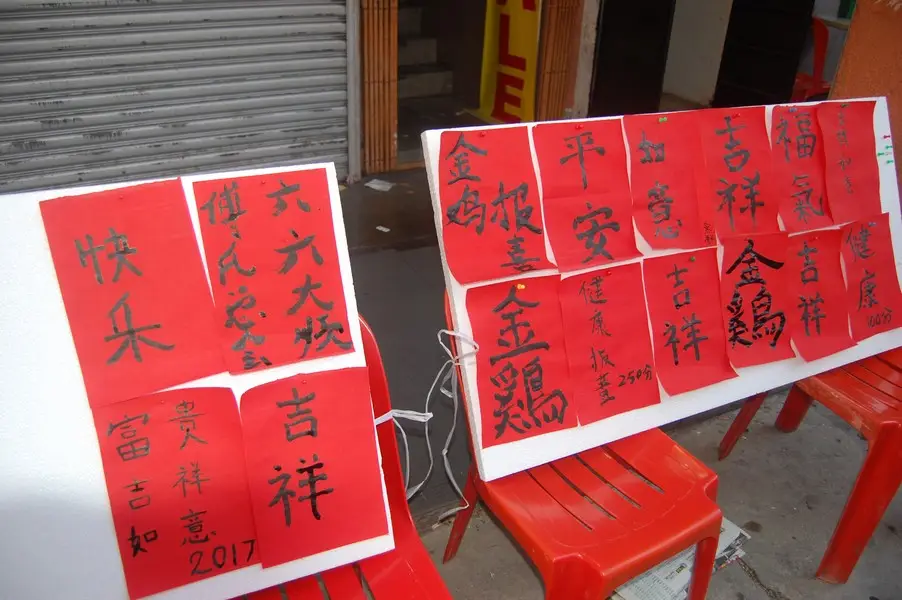 快乐
六六大顺
富吉如
貴祥意
2017
吉祥
金鸡
报喜
平安
如意
吉祥
福氣
金鷄
健康
250分
吉祥
金鷄
吉祥
健康
100分
ALE